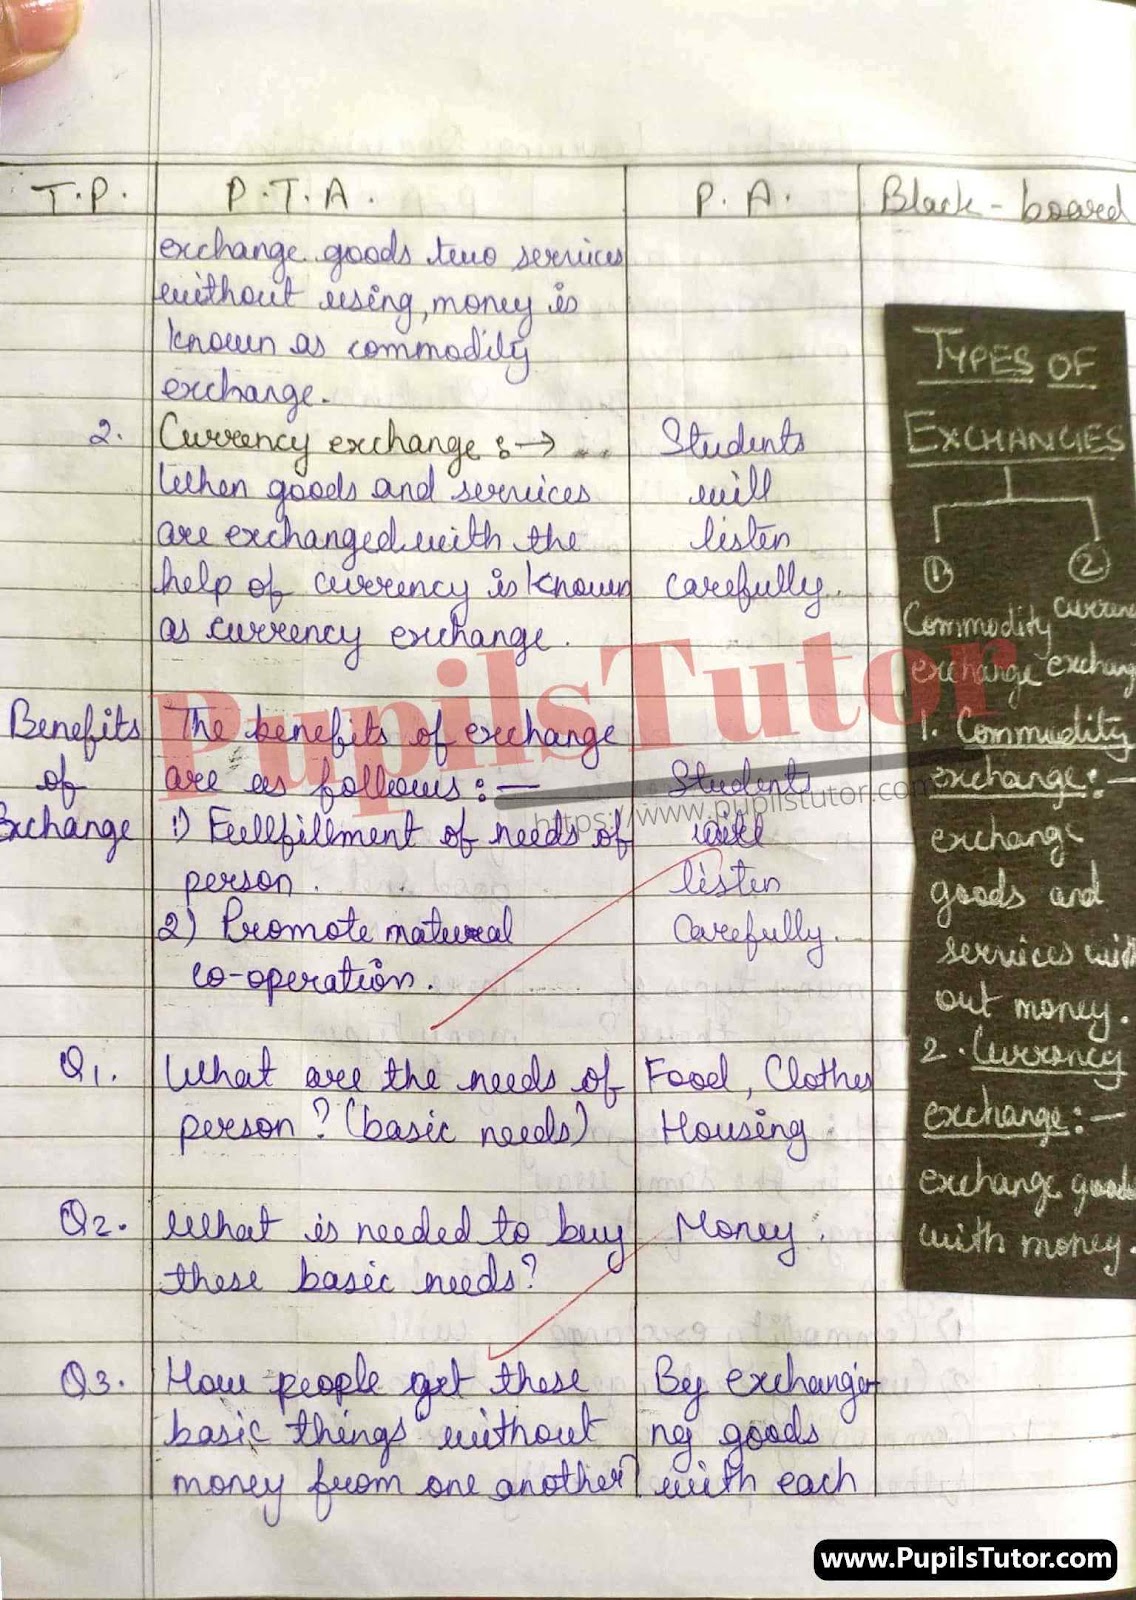 T.P.
P.T.A.
P.A.
Black-board
exchange goods two services
without using, money is
known as commodity
exchange.
2.
Currency exchange :→ ..
When goods and services
are exchanged with the
help of currency is known
as currency exchange.
Students
will
listen
carefully.
Benefits
of
Exchange
The benefits of exchange
are as follows :—
1) Fullfillment of needs of
person.
2) Promote matural
co-operation.
Students
will
listen
Carefully.
Q1.
What are the needs of
person? (basic needs)
Food, Clothes
Housing.
Q2.
What is needed to buy
these basic needs?
Money.
Q3.
How people get these
basic things without
money from one another?
By exchangi-
ng goods
with each
TYPES OF
EXCHANGES
1
2
Commodity
exchange
curren
exchang
1. Commodity
exchange:—
exchange
goods and
services with
out money.
2. Currency
exchange:—
exchange goods
with money.
PupilsTutor
https://www.pupilstutor.com
www.PupilsTutor.com